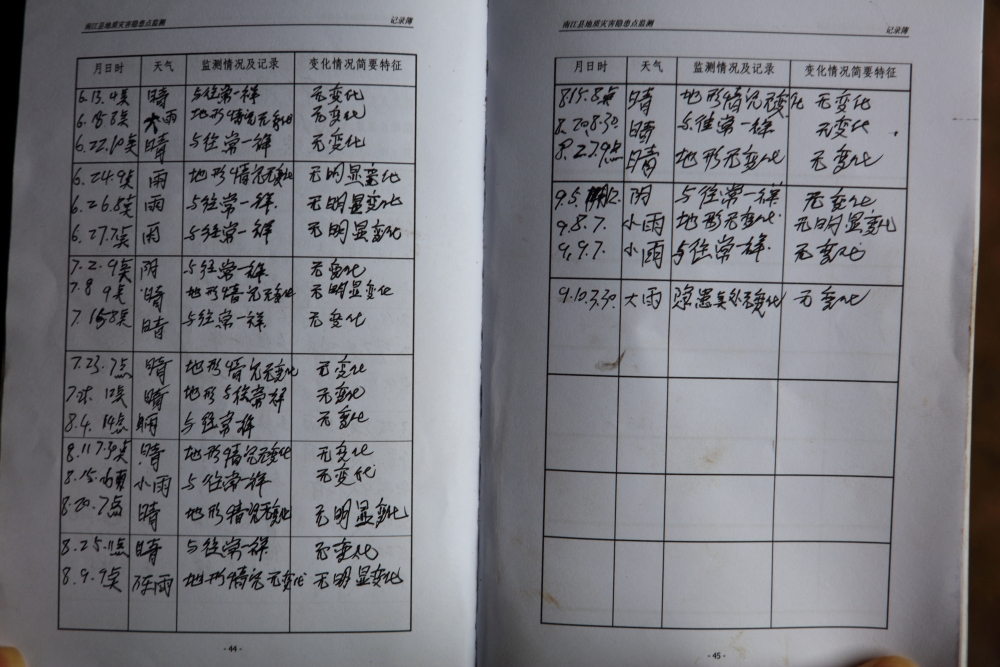 南江县地质灾害隐患点监测 记录簿
月日时 天气 监测情况及记录 变化情况简要特征
6.13.4点 晴 与往常一样 无变化
6.18.8点 大雨 地形情况无变化 无变化
6.22.10点 晴 与往常一样 无变化
6.24.9点 雨 地形情况无变化 无明显变化
6.26.8点 雨 与往常一样 无明显变化
6.27.7点 雨 与往常一样 无明显变化
7.2.9点 阴 与往常一样 无变化
7.8 9点 晴 地形情况无变化 无明显变化
7.15.8点 晴 与往常一样 无变化
7.23.7点 晴 地形情况无变化 无变化
12点 晴 地形与往常样 无变化
8.4.14点 与往常样 无变化
8.11.7.30点 晴 地形情况无变化 无变化
8.15. 小雨 与往常样 无变化
8.20.7点 晴 地形情况无变化 无明显变化
8.25.11点 晴 与往常一样 无变化
8.9.9点 雨 地形情况无变化 无明显变化
- 44 -
南江县地质灾害隐患点监测 记录簿
月日时 天气 监测情况及记录 变化情况简要特征
8.15.8点 晴 地形情况无变化 无变化
8.20.8.30 晴 与往常一样 无变化
8.27.9点 晴 地形无变化 无变化
9.5. 12. 阴 与往常一样 无变化
9.8.7. 小雨 地形无变化 无明显变化
9.9.7. 小雨 与往常一样 无变化
9.10.3.30 大雨 隐患点处无变化 无变化
- 45 -